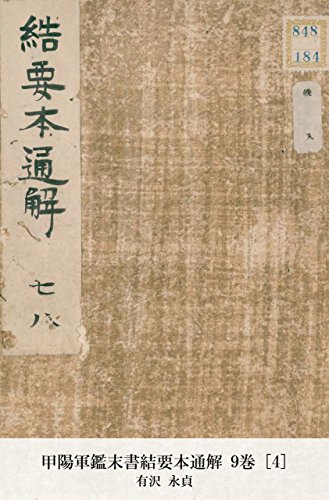 結要本通解
七八
848
184
甲陽軍鑑末書結要本通解 9巻 [4]
有沢 永貞